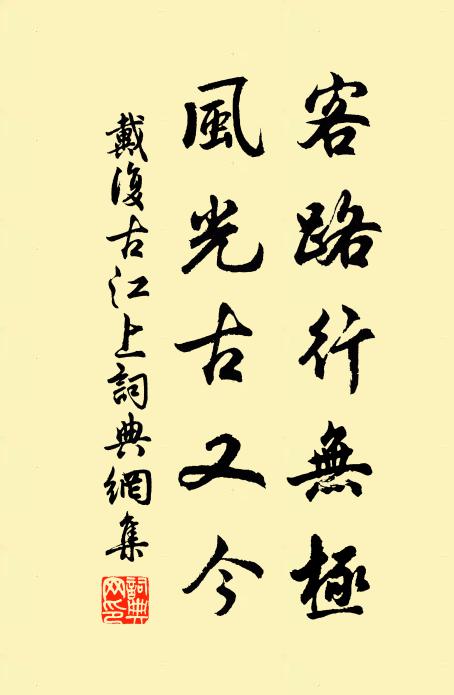 客路行無極
風光古又今
戴復古江上詞典網集
詞典網印